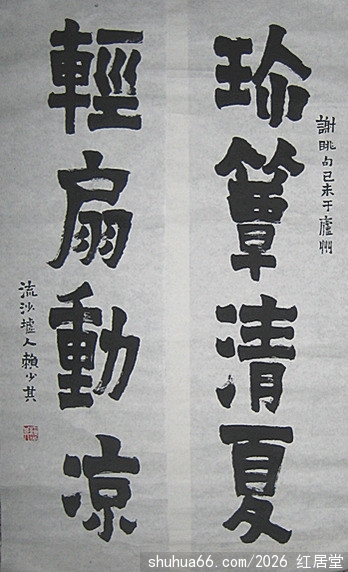 珎簟清夏
謝眺句己未于廬州
輕扇動凉
流沙墟人賴少其
shuhua66.com/2026 红居堂